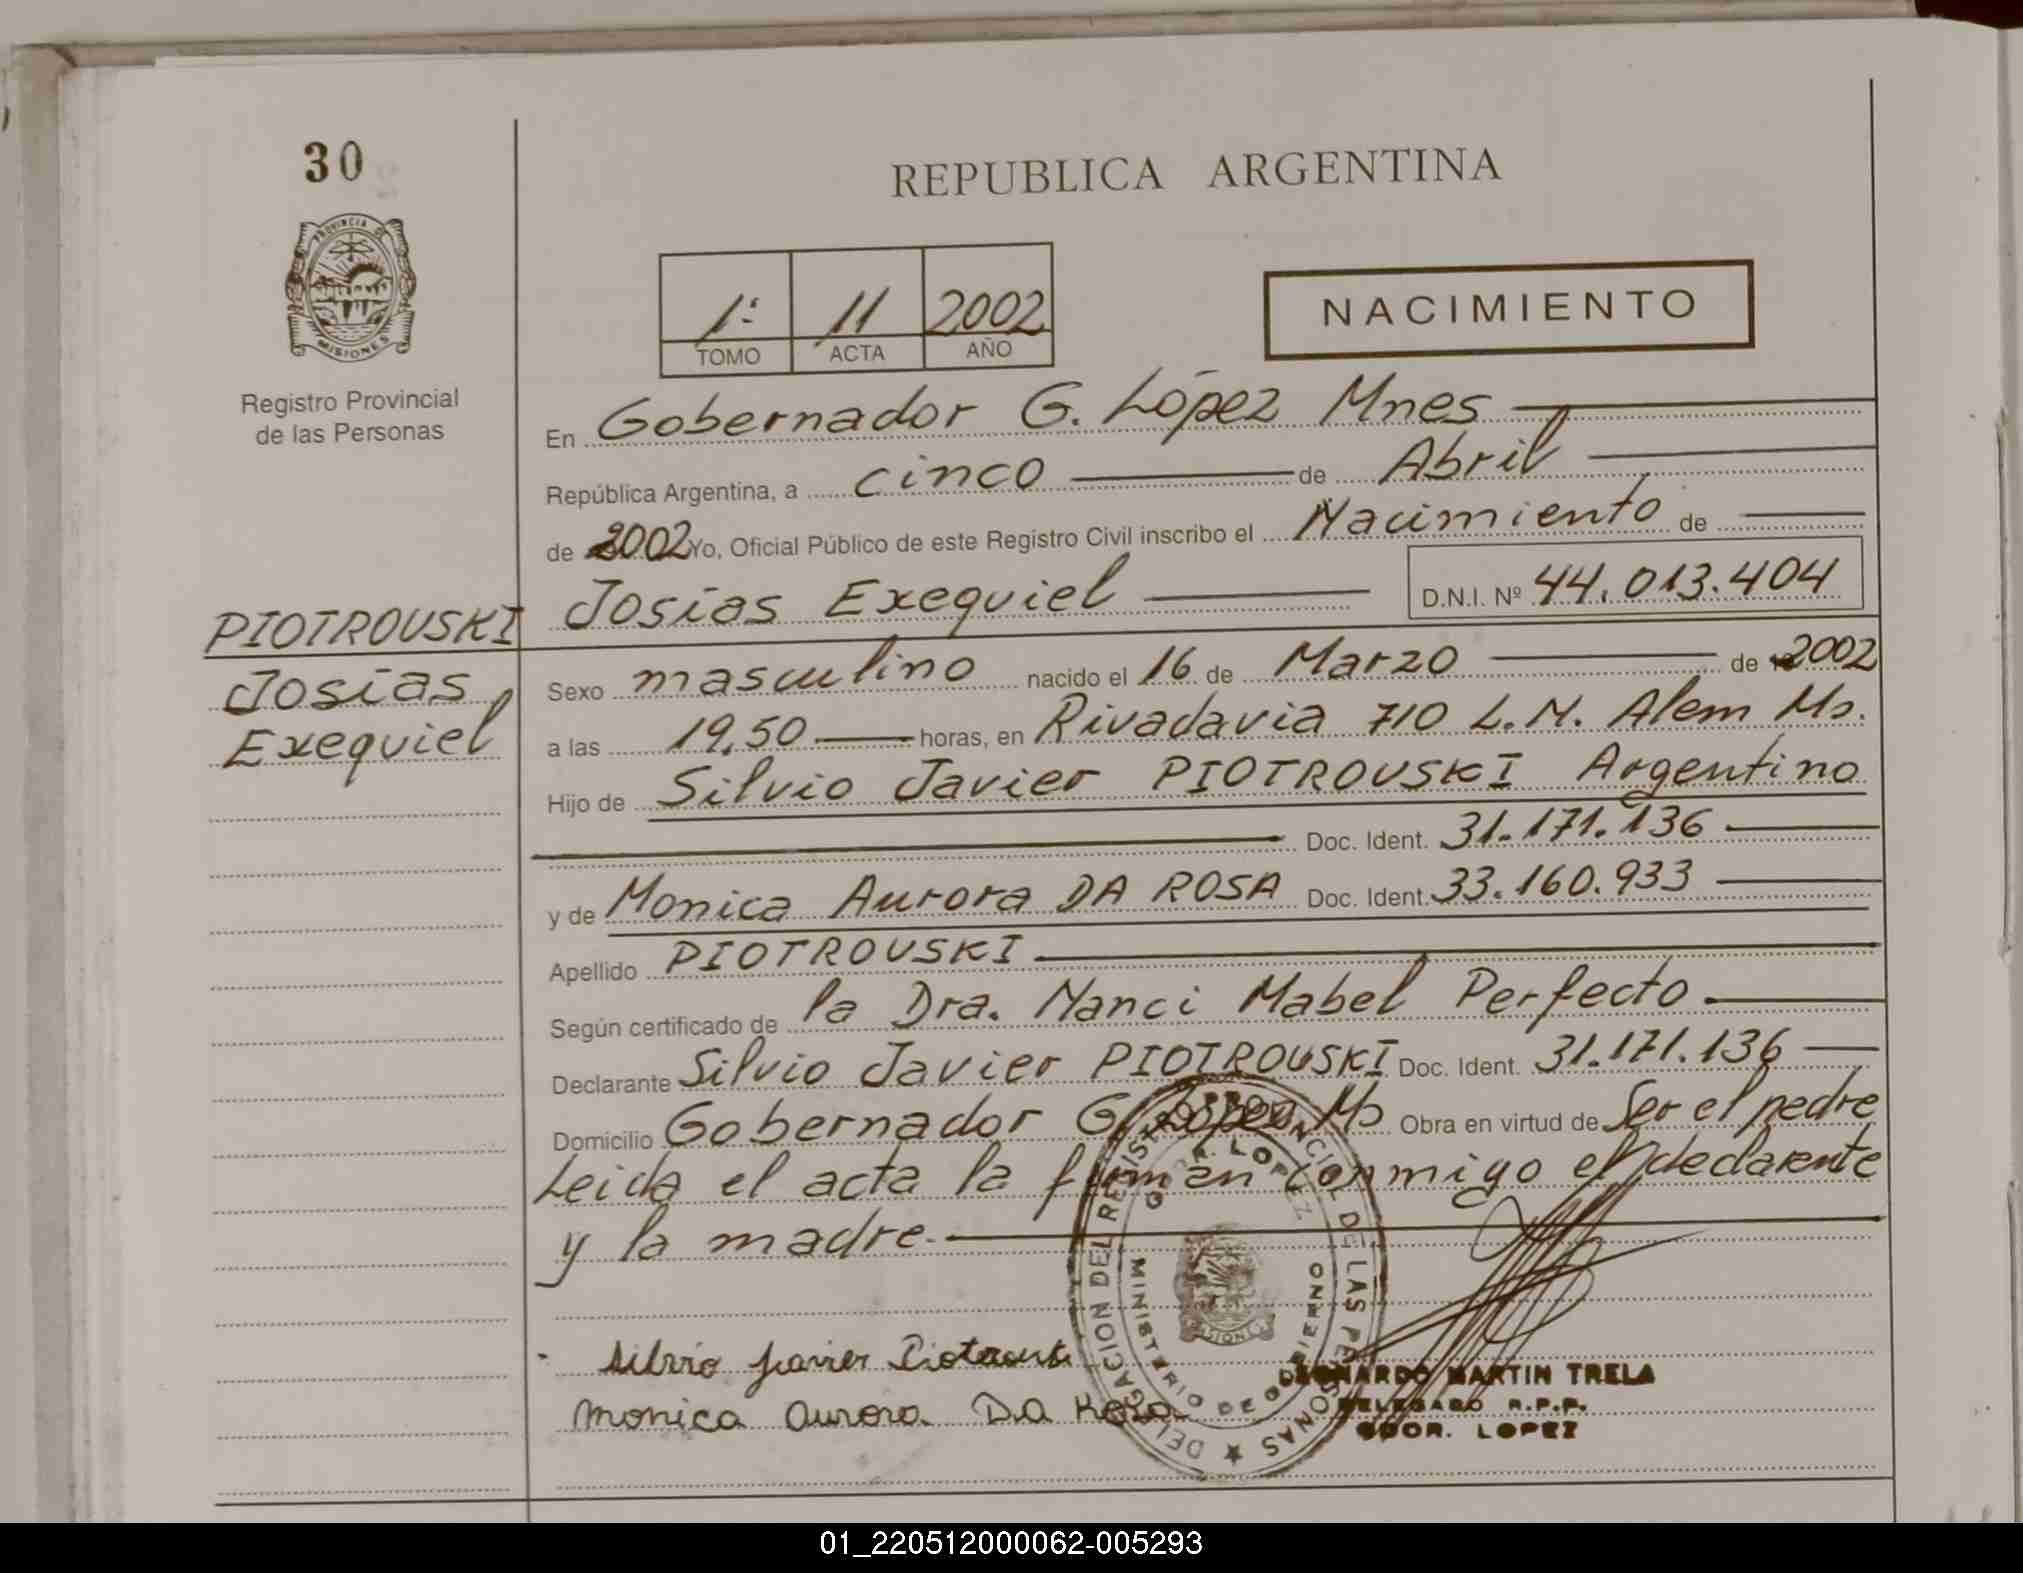 30
PROVINCIA DE
MISIONES
Registro Provincial
de las Personas
PIOTROUSKI
Josías
Exequiel
REPUBLICA ARGENTINA
1º 11 2002
TOMO ACTA AÑO
NACIMIENTO
En Gobernador G. López Mnes
República Argentina, a cinco de Abril
de 2002 Yo, Oficial Público de este Registro Civil inscribo el Nacimiento de
Josías Exequiel D.N.I. Nº 44.013.404
Sexo masculino nacido el 16 de Marzo de 2002
a las 19,50 horas, en Rivadavia 710 L.N. Alem Ms.
Hijo de Silvio Javier PIOTROUSKI Argentino
Doc. Ident. 31.171.136
y de Monica Aurora DA ROSA Doc. Ident. 33.160.933
Apellido PIOTROUSKI
Según certificado de la Dra. Nanci Mabel Perfecto
Declarante Silvio Javier PIOTROUSKI Doc. Ident. 31.171.136
Domicilio Gobernador G. López Ms Obra en virtud de Ser el padre
Leida el acta la firman conmigo el declarante
y la madre.
Silvio Javier Piotrouski
Monica Aurora Da Rosa
DELEGACION DEL REGISTRO PROVINCIAL DE LAS PERSONAS
GDOR. LOPEZ
MINISTERIO DE GOBIERNO
MISIONES
LEONARDO MARTIN TRELA
DELEGADO R.P.P.
GDOR. LOPEZ
01_220512000062-005293